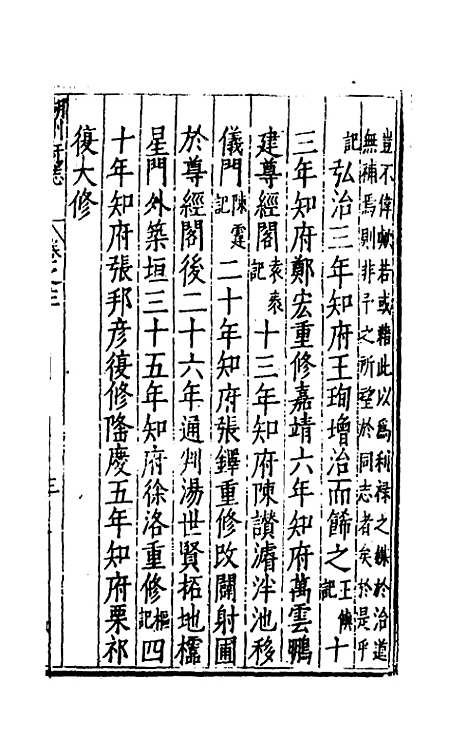 豈不偉歟若或藉此以爲利祿之媒於治道
無補焉則非予之所望於同志者矣於是乎
記弘治三年知府王珣增治而飾之王㒜記十
三年知府鄭宏重修嘉靖六年知府萬雲鵬
建尊經閣袁泰記十三年知府陳讃濬泮池移
儀門陳霆記二十年知府張鐸重修改闢射圃
於尊經閣後二十六年通判湯世賢拓地櫺
星門外築垣三十五年知府徐洛重修記四
十年知府張邦彥復修隆慶五年知府栗祁
復大修
卷之三